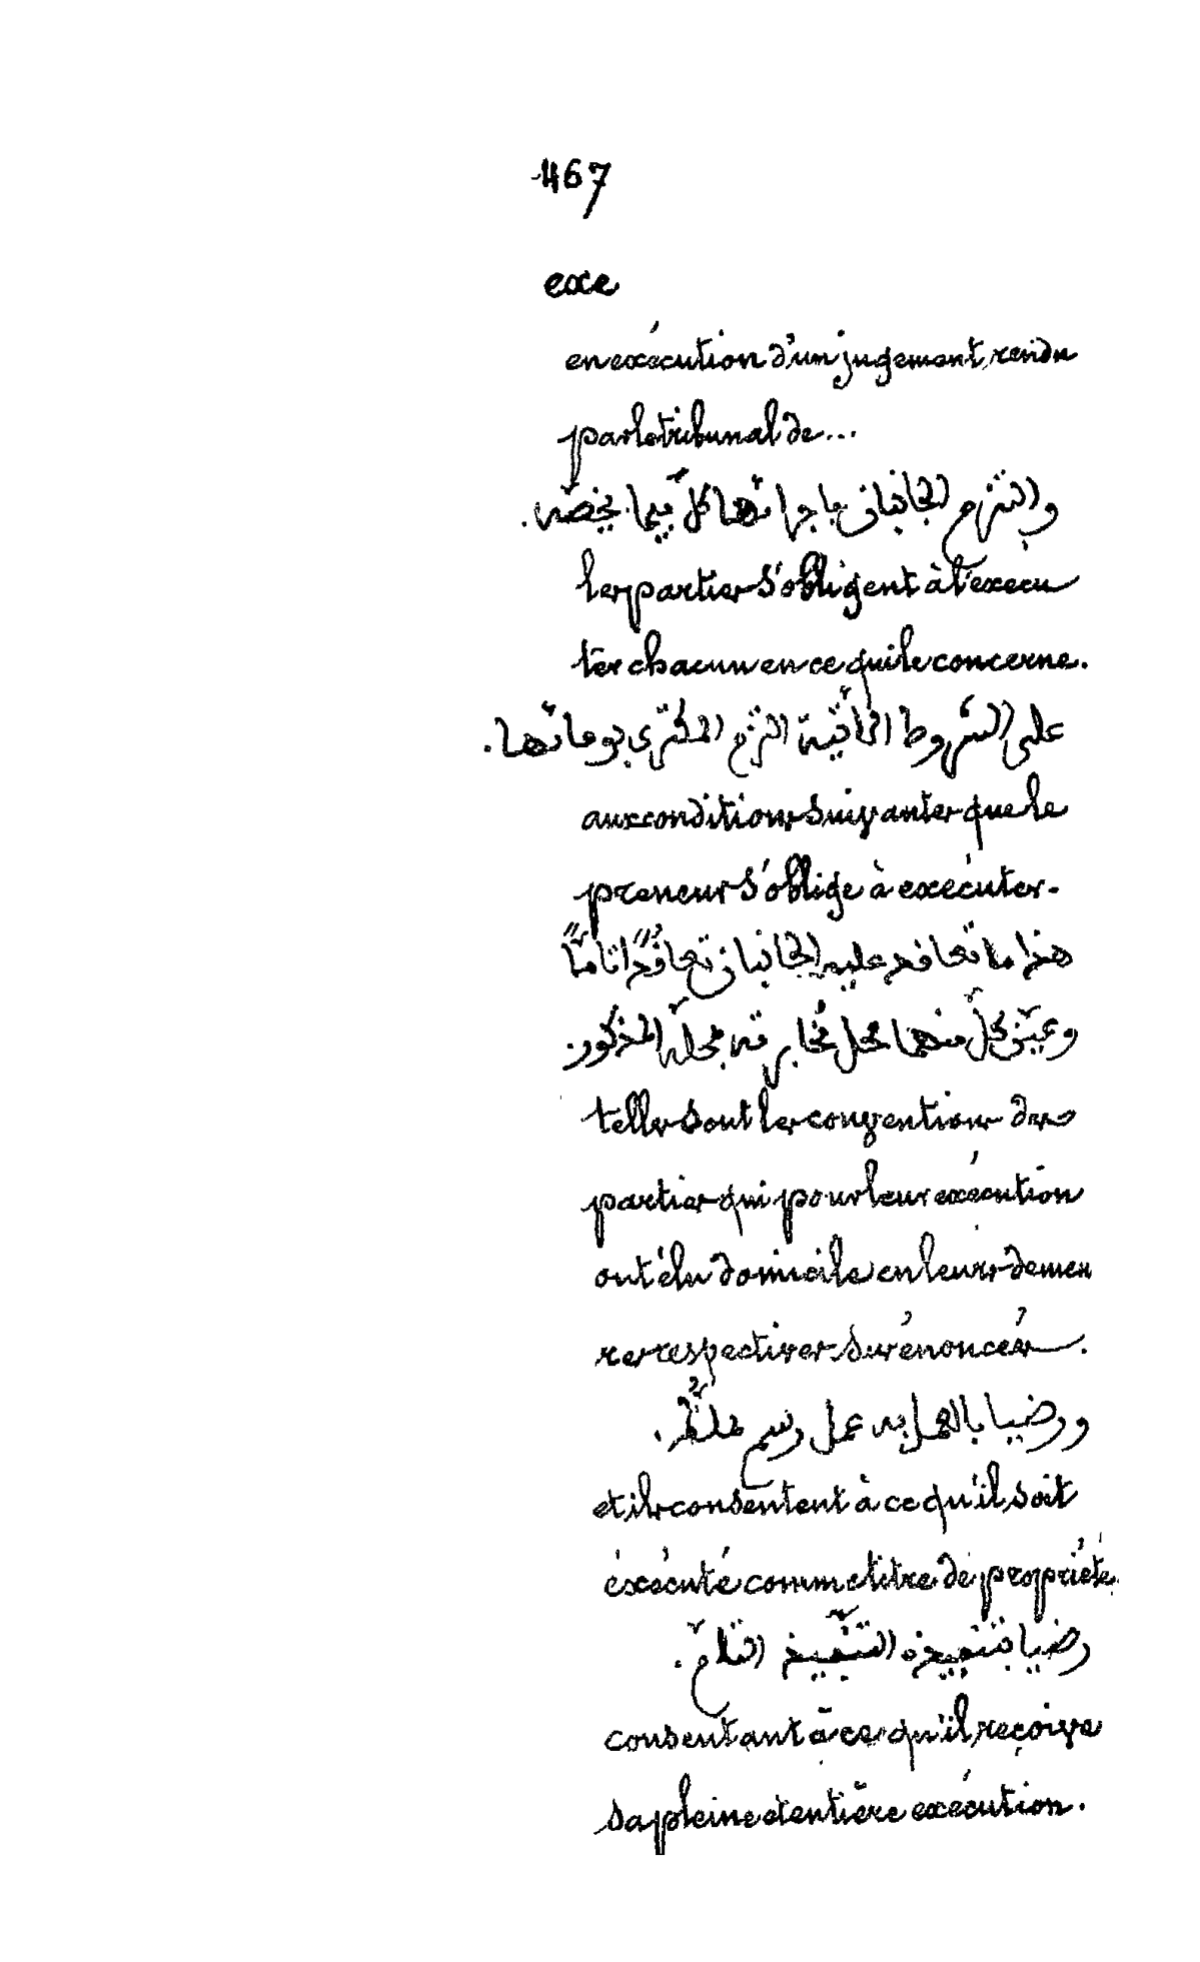 467
exe
en exécution d'un jugement rendu
par le tribunal de...
والتزم الجانبان باجرائها كلّ فيما يخصّه.
les parties s'obligent à l'exécu
ter chacun en ce qui le concerne.
على الشروط الآتية التزم المكتري بوفائها.
aux conditions suivantes que le
preneur s'oblige à exécuter.
هذا ما تعاقد عليه الجانبان تعاقُدًا تامًّا
وعيّن كلّ منهما محل مُخابرته بمحلّه المذكور.
telles sont les conventions des
parties qui pour leur exécution
ont élu domicile en leurs demeu
res respectives susénoncées.
ورضيا بالعمل به عمل رسم
et ils consentent à ce qu'il soit
éxécuté comme titre de propriété.
رضيا بتنفيذه التنفيذ التامّ.
consentant à ce qu'il reçoive
sa pleine et entière exécution.